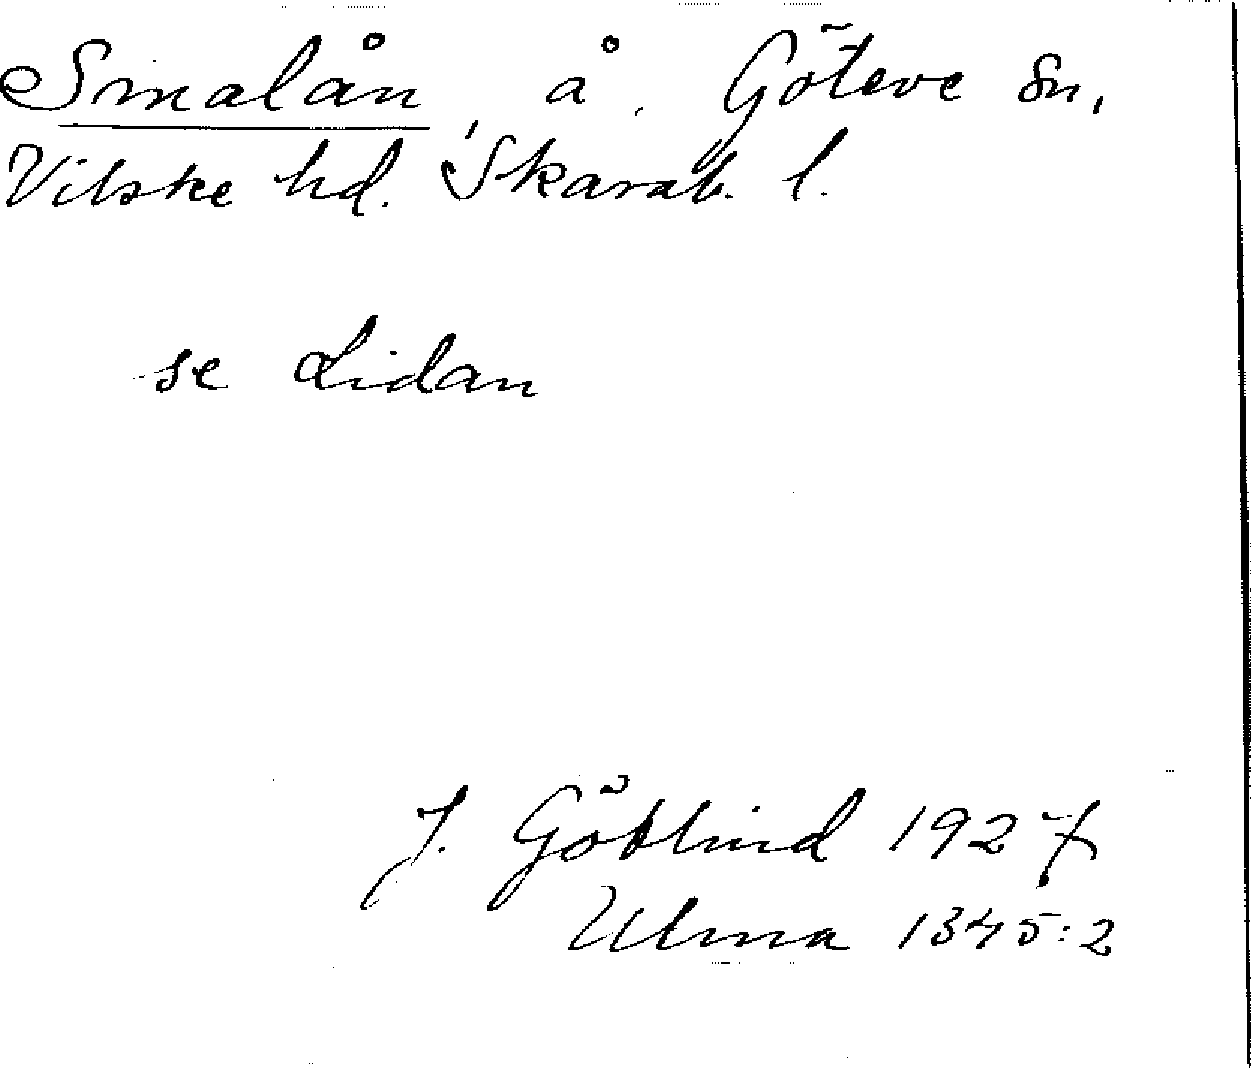 Smalån, å. Göteve sn,
Vilske hd. Skarab. l.
se Lidan
J. Götlind 1927
Ulma 1345:2